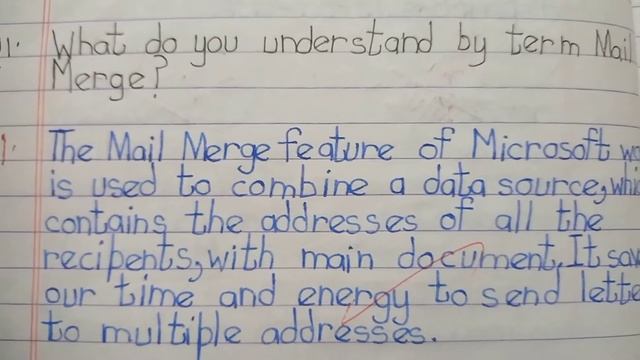 1. What do you understand by term Mail
Merge?
1. The Mail Merge feature of Microsoft wo
is used to combine a data source, whic
contains the addresses of all the
recipents, with main document. It sav
our time and energy to send lette
to multiple addresses.